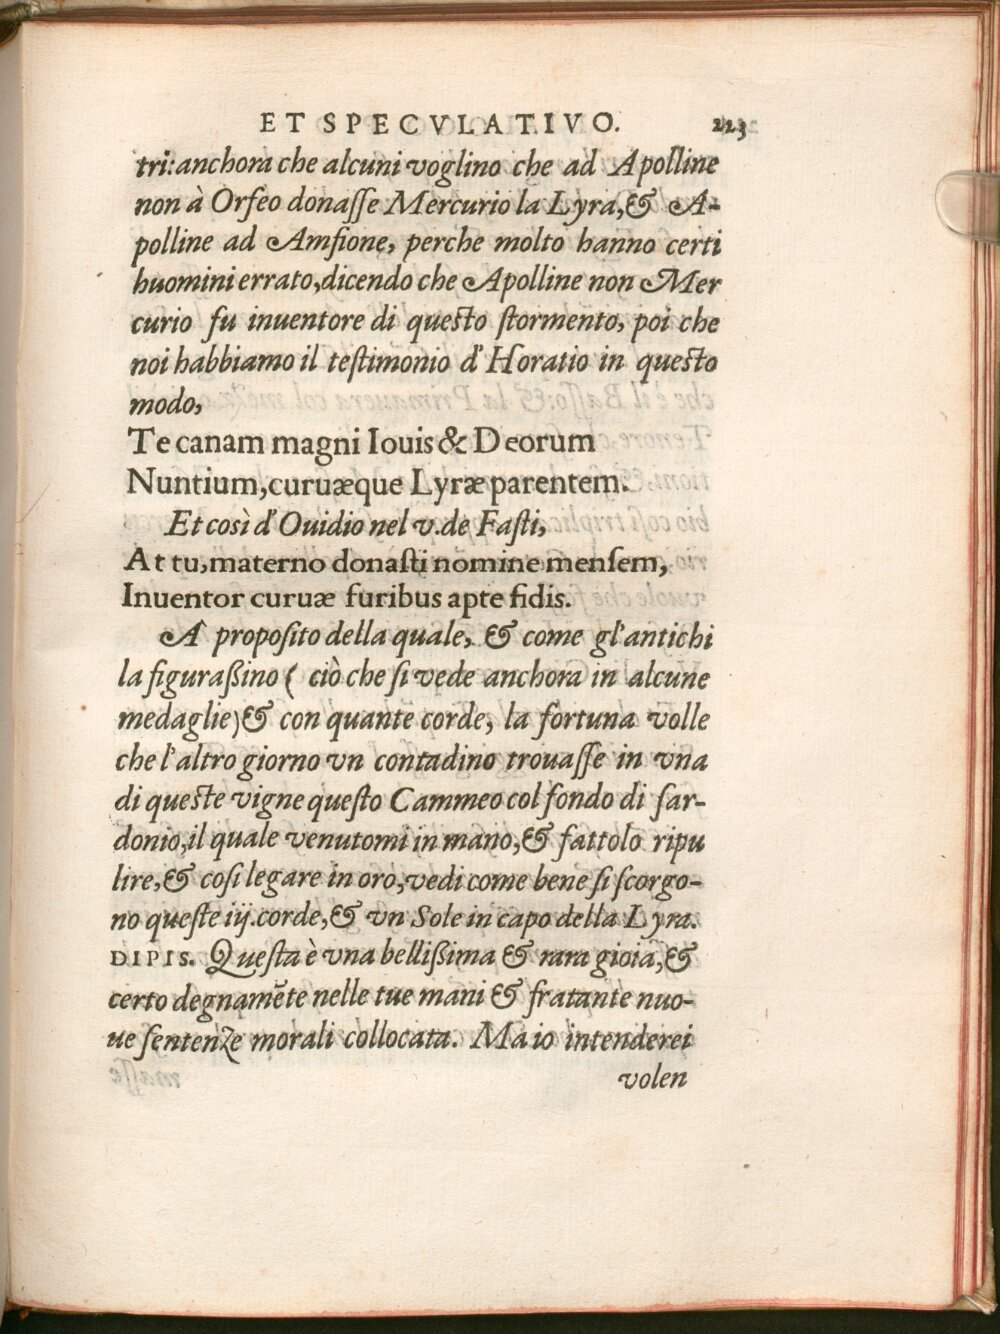 ET SPECVLATIVO. 223
tri: anchora che alcuni voglino che ad Apolline
non à Orfeo donaſſe Mercurio la Lyra, & A-
polline ad Amfione, perche molto hanno certi
huomini errato, dicendo che Apolline non Mer
curio fu inuentore di queſto ſtormento, poi che
noi habbiamo il teſtimonio d'Horatio in queſto
modo,
Te canam magni Iouis & Deorum
Nuntium, curuæque Lyræ parentem.
Et così d'Ouidio nel v. de Faſti,
At tu, materno donaſti nomine menſem,
Inuentor curuæ furibus apte fidis.
A propoſito della quale, & come gl'antichi
la figuraßino ( ciò che ſi vede anchora in alcune
medaglie) & con quante corde, la fortuna volle
che l'altro giorno vn contadino trouaſſe in vna
di queſte vigne queſto Cammeo col fondo di ſar-
donio, il quale venutomi in mano, & fattolo ripu
lire, & coſi legare in oro, vedi come bene ſi ſcorgo-
no queſte iij. corde, & vn Sole in capo della Lyra.
DIPIS. Queſta è vna bellißima & rara gioia, &
certo degnamēte nelle tue mani & fra tante nuo-
ue ſentenze morali collocata. Ma io intenderei
volen